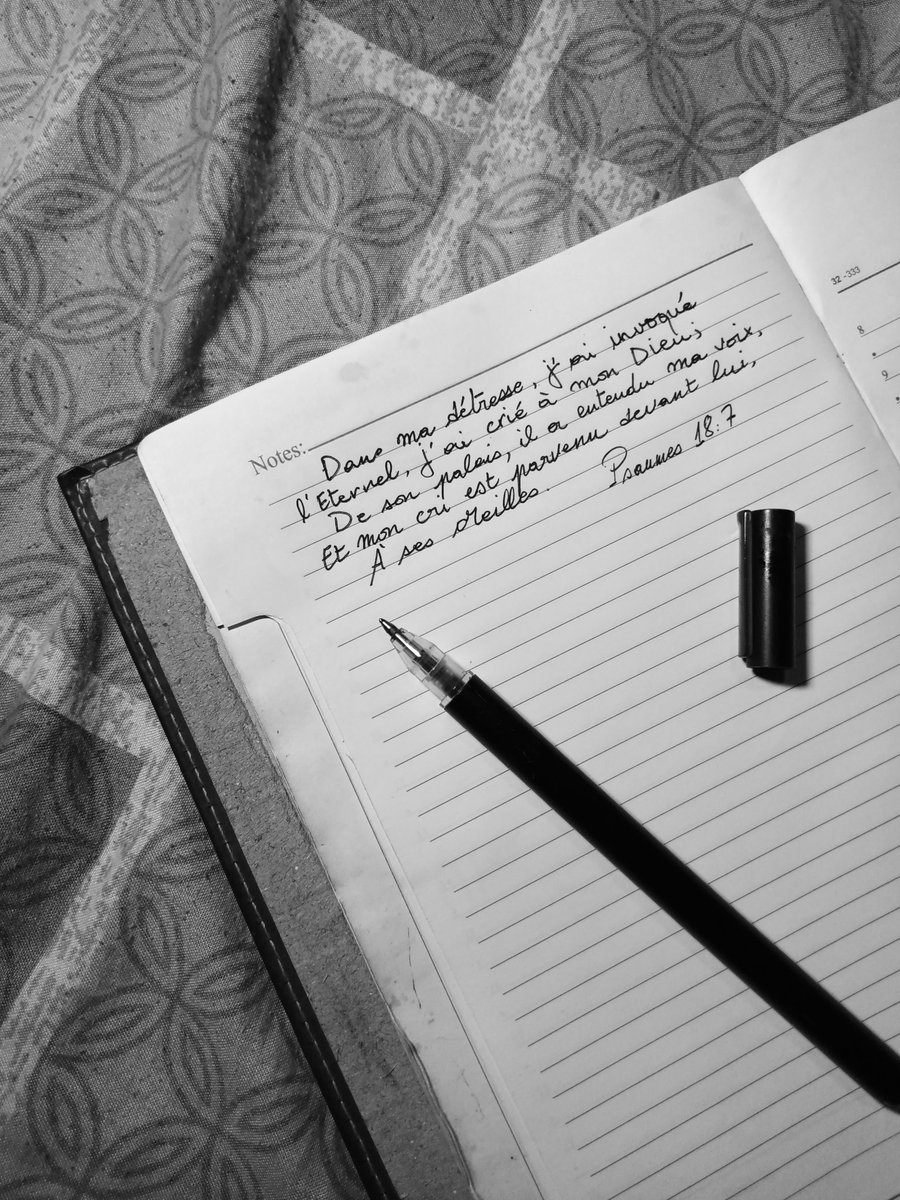 Notes:
Dans ma détresse, j'ai invoqué
l'Eternel, j'ai crié à mon Dieu;
De son palais, il a entendu ma voix,
Et mon cri est parvenu devant lui,
À ses oreilles. Psaumes 18:7
32-333
8
9